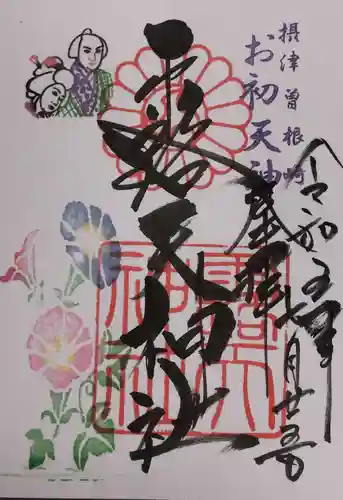 摂津曽根崎
お初天神
奉拝
露天神社
令和五年七月廿五日